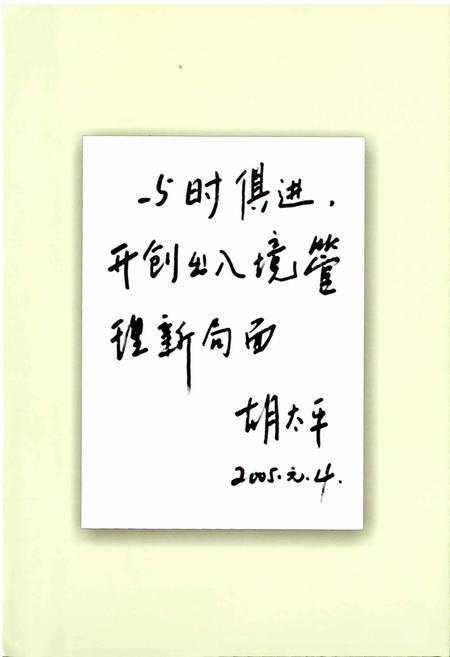 与时俱进，
开创出入境管
理新局面
胡太平
2005.元.4.